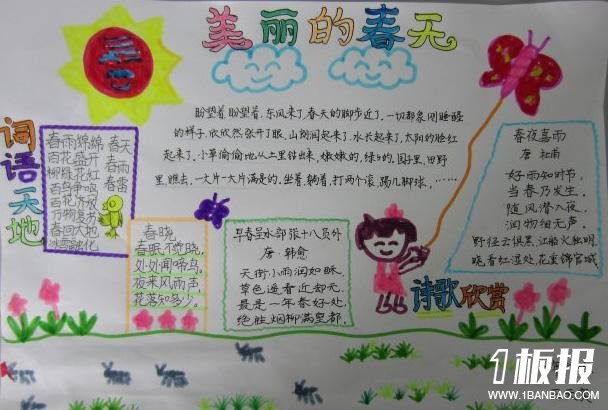 美丽的春天
盼望着,盼望着,东风来了,春天的脚步近了,一切都象刚睡醒
的样子,欣欣然张开了眼,山朗润起来了,水长起来了,太阳的脸红
起来了,小草偷偷地从土里钻出来,嫩嫩的,绿绿的,园子里,田野
里,瞧去,一大片一大片满是的,坐着,躺着,打两个滚,踢几脚球,……
词语天地
春雨绵绵 春天
百花盛开
柳绿花红 春雨
百鸟争鸣
百花齐放
万物复苏
春回大地
冰雪融化
春晓
春眠不觉晓,
处处闻啼鸟。
夜来风雨声,
花落知多少。
早春呈水部张十八员外
唐·韩愈
天街小雨润如酥,
草色遥看近却无。
最是一年春好处,
绝胜烟柳满皇都.
春夜喜雨
唐 杜甫
好雨知时节,
当春乃发生.
随风潜入夜,
润物细无声.
野径云俱黑,江船火独明.
晓看红湿处,花重锦官城
诗歌欣赏
1板报
WWW.1BANBAO.COM